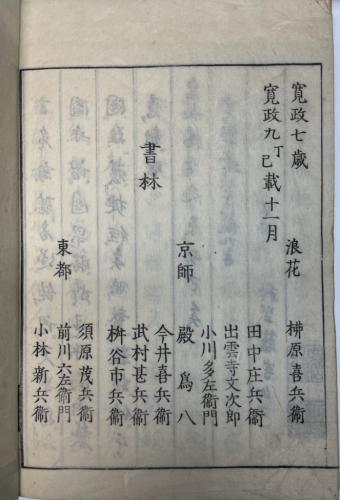 寛政七歳
寛政九丁巳載十一月
浪花 栁原喜兵衞
田中庄兵衞
出雲寺文次郎
小川多左衞門
京師 殿為八
今井喜兵衞
書林
武村甚兵衞
桝谷市兵衞
須原茂兵衞
東都 前川六左衞門
小林新兵衞